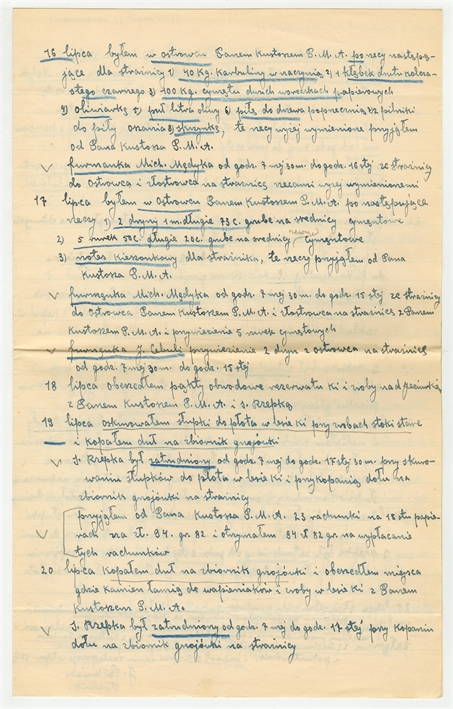 16 lipca byłem w ostrowcu Panem Kustoszem P. M. A. po recy następują-
jące dla strażnicy 1) 40 Kg. Karboliny w naczyniu 2) 1 kłębek drutu kolcza-
stego czarnego 3) 100 Kg. cymętu dwuch woreczkach papierowych
4) oliwiarkę 5) puł litra oliwy 6) piłę do drzewa poprzecznią 2 pilniki
do piły 8) skrzynkę, te recy wyżej wymienione pryjąłem
od Pana Kustosza P. M. A.
furmanka Mich. Mądyka od godz. 7 mej 30 m. do godz. 16 stej ze strażnicy
do Ostrowca i z Ostrowca na strażnicę recami wyżej wymienionemi
17 lipca byłem w Ostrowcu Panem Kustoszem P. M. A. po następujące
recy 1) 2 dryny 1 m. długie 73 c. grube na srednicy cymętowe
2) 5 rurek 50 c. długie 20 c. grube na srednicy cymętowe
3) notes kieszonkowy dla strażnika, te recy pryjąłem od Pana
Kustosza P. M. A.
furmanka Mich. Mądyka od godz. 7 mej 30 m. do godz. 15 stej ze strażnicy
do Ostrowca Panem Kustoszem P. M. A. i z Ostrowca na strażnicę z Panem
Kustoszem P. M. A. i prywiezienie 5 rurek cymętowych
furmanka J. Cebuli prywiezienie 2 dryn z Ostrowca na strażnicę
od godz. 7 mej 30 m. do godz. 15 stej
18 lipca obeszedłem pąkty obwodowe rezerwatu ki i zroby nad
z Panem Kustoszem P. M. A. i J. Rzepką
19 lipca oskurowałem słupki do płota w lesie ki pry zrobach stoki stare
i kopałem duł na zbiornik gnojówki
J. Rzepka był zatrudniony od godz. 7 mej do godz. 17 stej 30 m. pry skuro-
waniu słupków do płota w lesie ki i prykopaniu dołu na
zbiornik gnojówki na strażnicy
pryjąłem od Pana Kustosza P. M. A. 23 rachunki na 18 stu papie-
rach na zł. 94. gr. 82 i otrymałem 94 zł 82 gr na wypłacanie
tych rachunków
20 lipca kopałem duł na zbiornik gnojówki i obeszedłem miejsca
gdzie kamień łamią do wapienników i zroby w lesie ki z Panem
Kustoszem P. M. A.
J. Rzepka był zatrudniony od godz. 7 mej do godz. 17 stej pry kopaniu
dołu na zbiornik gnojówki na strażnicy